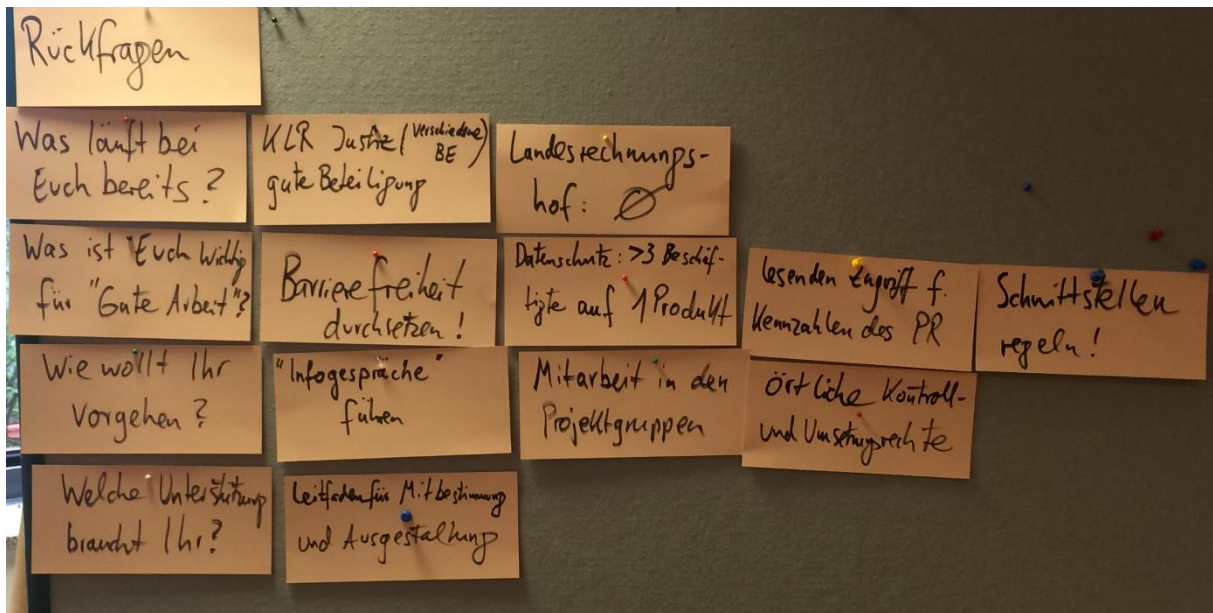 Rückfragen
Was läuft bei
Euch bereits?
KLR Justiz (verschiedene
BE)
gute Beteiligung
Landesrechnungs-
hof: Ø
Was ist Euch wichtig
für "Gute Arbeit"?
Barrierefreiheit
durchsetzen!
Datenschutz: >3 Beschäf-
tigte auf 1 Produkt
lesenden Zugriff f.
Kennzahlen des PR
Schnittstellen
regeln!
Wie wollt Ihr
vorgehen?
"Infogespräche"
führen
Mitarbeit in den
Projektgruppen
örtliche Kontroll-
und Umsetzungsrechte
Welche Unterstützung
braucht Ihr?
Leitfaden für Mitbestimmung
und Ausgestaltung